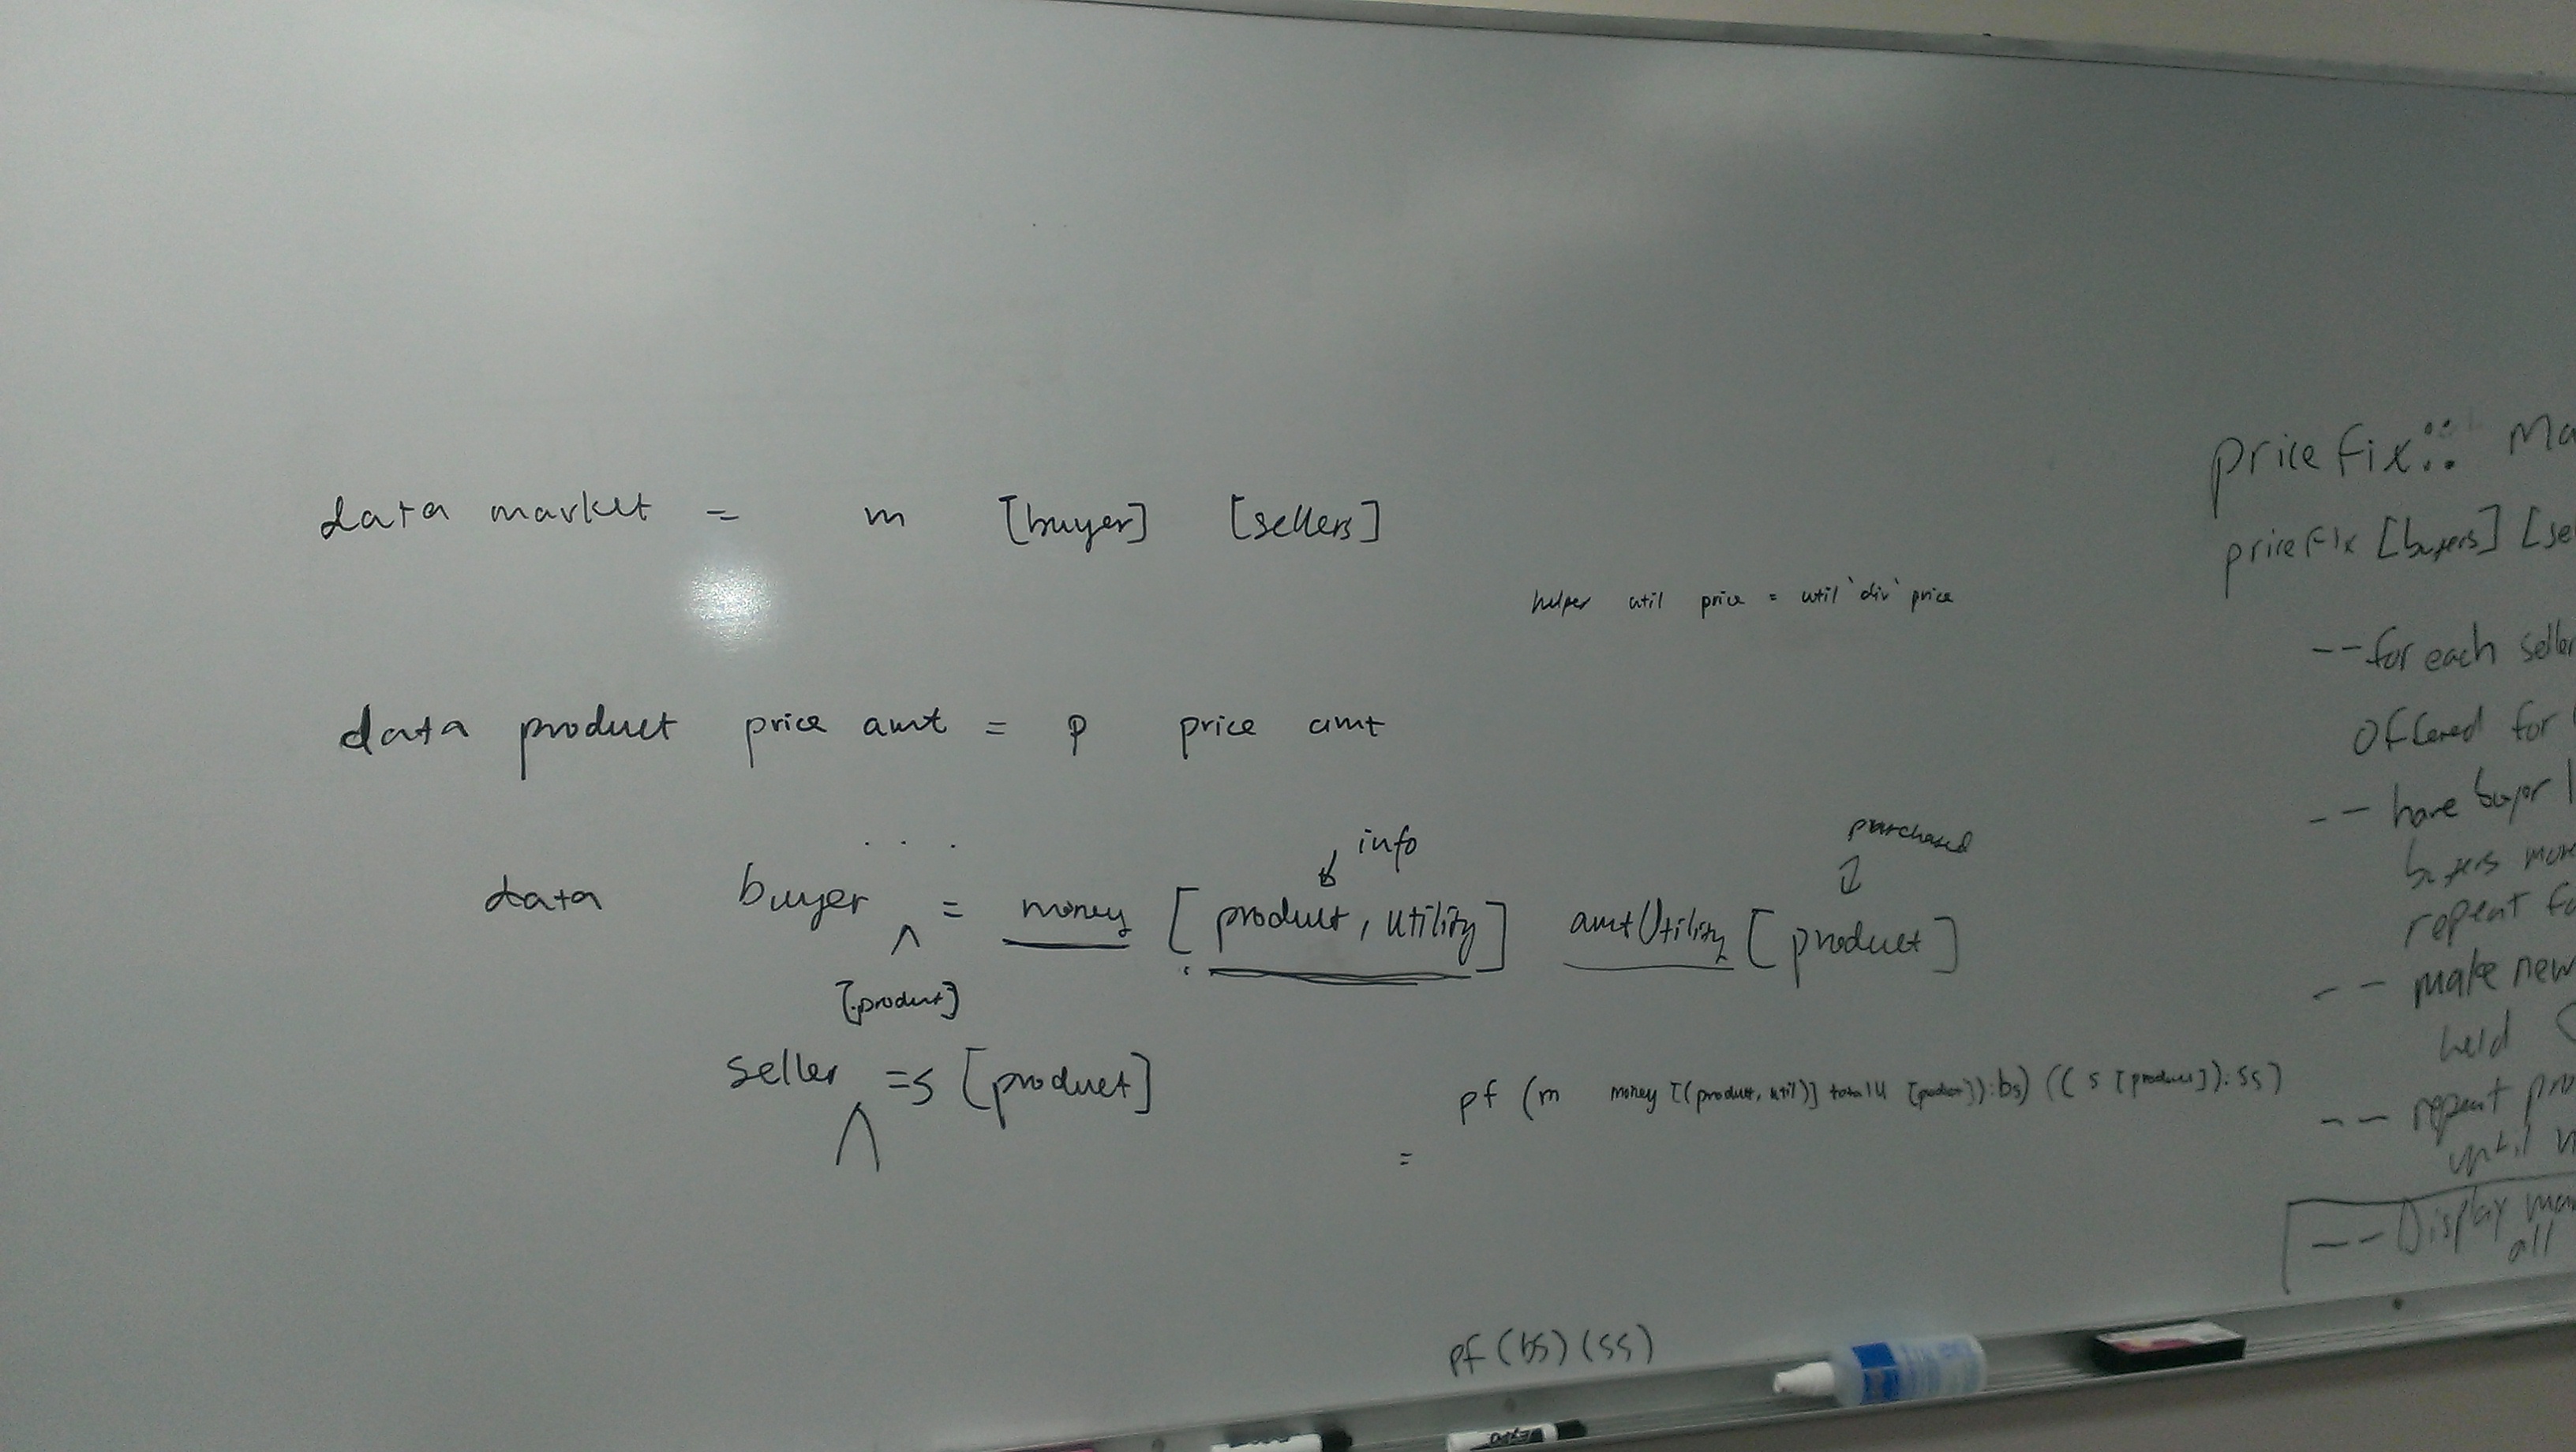 data market = m [buyer] [sellers]
helper util price = util `div` price
data product price amt = p price amt
info
purchased
data buyer ^ = money [product, utility] amtUtility [product]
[product]
seller ^ = s [product]
pf (m money [(product, util)] totalU [product]):bs) ((s [product]):ss)
=
pf (bs) (ss)
priceFix::
priceFix [buyers]
-- for each
offered for
-- have buyer
buyers
repeat
-- make new
held
-- repeat
until
-- Display
all
EXPO